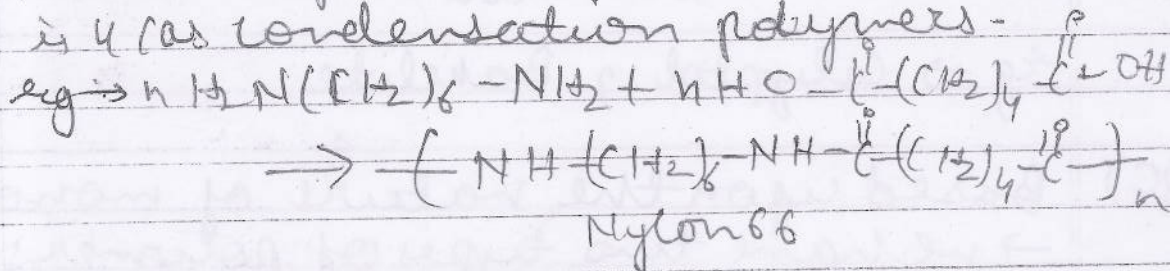 is 4 (as condensation polymers-
eg → n H2N(CH2)6 -NH2 + n HO-C(=O)-(CH2)4-C(=O)-OH
→ -( NH-(CH2)6-NH-C(=O)-(CH2)4-C(=O)-)n
Nylon 66